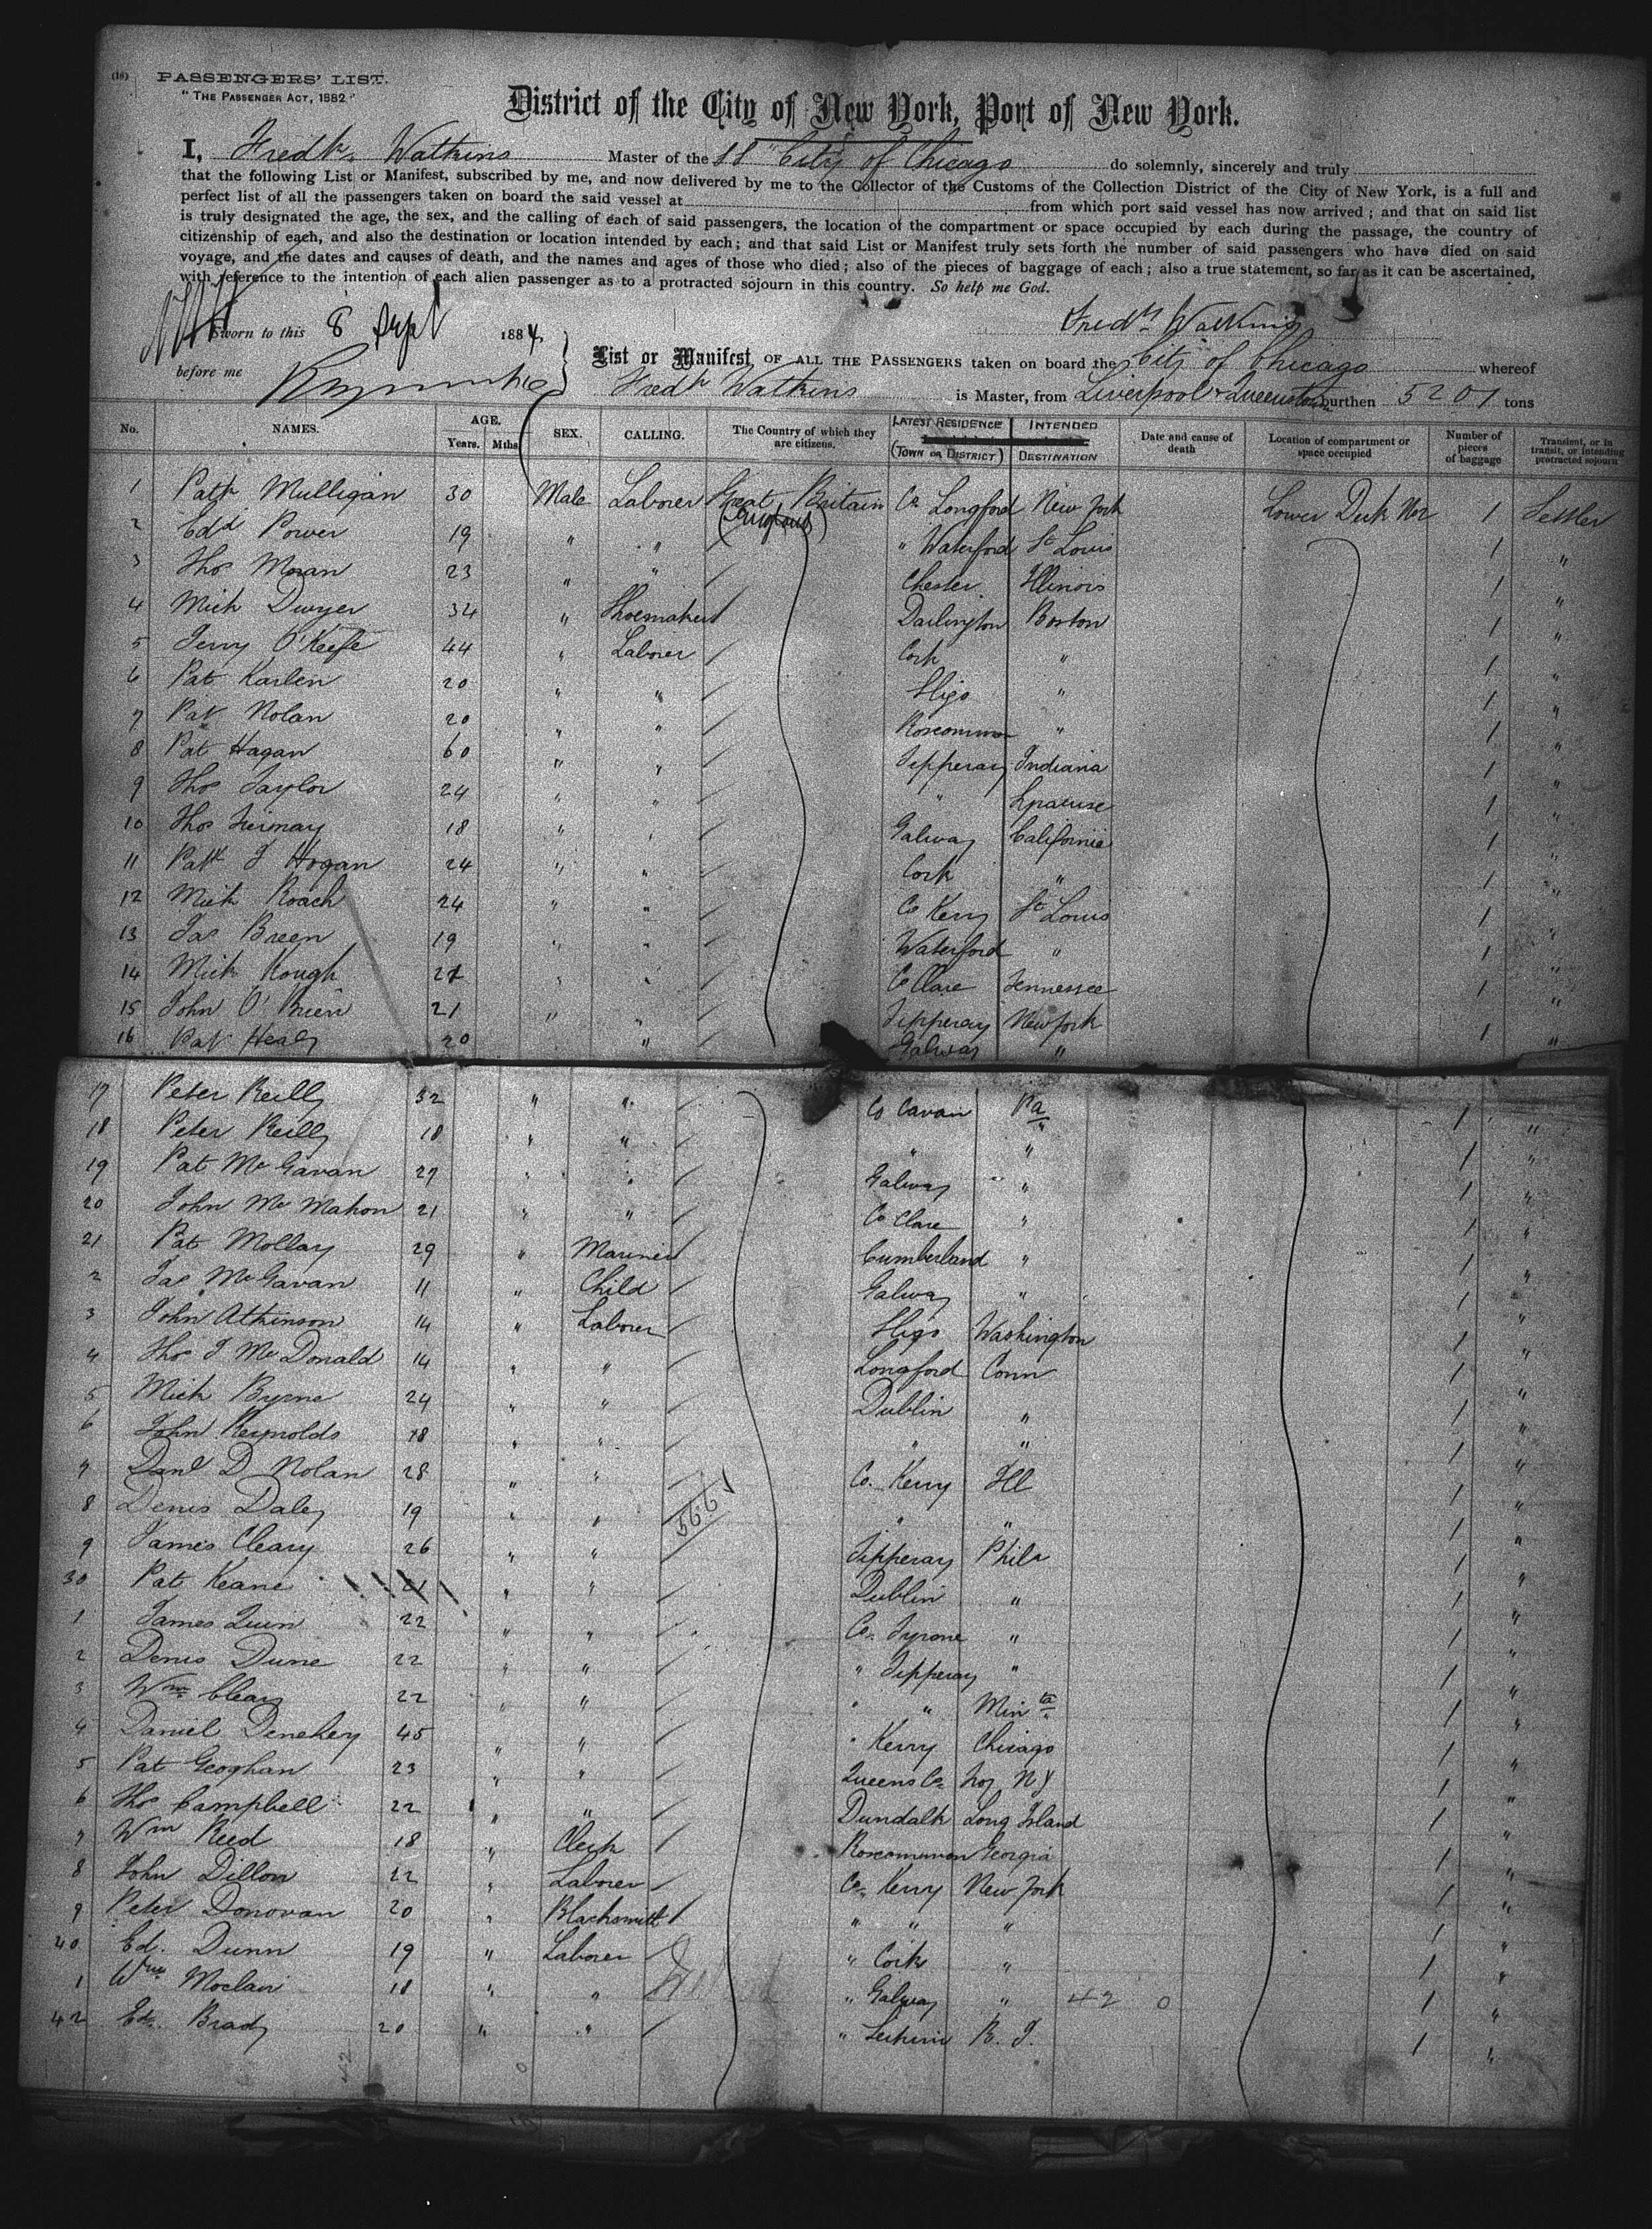 (18) PASSENGERS' LIST.
"THE PASSENGER ACT, 1882"
District of the City of New York, Port of New York.
I, Fredk. Watkins Master of the SS "City of Chicago do solemnly, sincerely and truly
that the following List or Manifest, subscribed by me, and now delivered by me to the Collector of the Customs of the Collection District of the City of New York, is a full and
perfect list of all the passengers taken on board the said vessel at from which port said vessel has now arrived; and that on said list
is truly designated the age, the sex, and the calling of each of said passengers, the location of the compartment or space occupied by each during the passage, the country of
citizenship of each, and also the destination or location intended by each; and that said List or Manifest truly sets forth the number of said passengers who have died on said
voyage, and the dates and causes of death, and the names and ages of those who died; also of the pieces of baggage of each; also a true statement, so far as it can be ascertained,
with reference to the intention of each alien passenger as to a protracted sojourn in this country. So help me God.
Sworn to this 8 Sept 1884 Fredk Watkins
before me
List or Manifest OF ALL THE PASSENGERS taken on board the City of Chicago whereof
Fredk Watkins is Master, from Liverpool & Queenstown burthen 5201 tons
No. NAMES. AGE. Years. Mths. SEX. CALLING. The Country of which they are citizens. LATEST RESIDENCE (TOWN OR DISTRICT) INTENDED DESTINATION Date and cause of death Location of compartment or space occupied Number of pieces of baggage Transient, or in transit, or intending protracted sojourn
1 Patk Mulligan 30 Male Laborer Great Britain Co Longford New York Lower Deck No 2 1 Settler
2 Edd Power 19 " " " Waterford St Louis 1 "
3 Thos Moran 23 " " Chester Illinois 1 "
4 Mich Dwyer 34 " Shoemaker Darlington Boston 1 "
5 Jerry O'Keefe 44 " Laborer Cork " 1 "
6 Pat Karlen 20 " " Sligo " 1 "
7 Pat Nolan 20 " " Roscommon " 1 "
8 Pat Hagan 60 " " Tipperary Indiana 1 "
9 Thos Taylor 24 " " " Syracuse 1 "
10 Thos 18 " " Galway California 1 "
11 Patk J Hogan 24 " " Cork " 1 "
12 Mich Roach 24 " " Co Kerry St Louis 1 "
13 Jas Breen 19 " " Waterford " 1 "
14 Mich Kough " " Co Clare Tennessee 1 "
15 John O'Brien 21 " " Tipperary New York 1 "
16 Pat Healy 20 " Galway " 1 "
17 Peter Reilly 32 " " Co Cavan Pa 1 "
18 Peter Reilly 18 " " " " 1 "
19 Pat McGavan 27 " " Galway " 1 "
20 John McMahon 21 " " Co Clare " 1 "
21 Pat Mollay 29 " Mariner Cumberland " 1 "
2 Jas McGavan 11 " Child Galway " 1 "
3 John Atkinson 14 " Laborer Sligo Washington 1 "
4 Thos J McDonald 14 " " Longford Conn 1 "
5 Mich Byrne 24 " " Dublin " 1 "
6 John Reynolds 18 " " " " 1 "
7 Danl D Nolan 28 " " Co. Kerry Ill 1 "
8 Denis Daley 19 " " " " 1 "
9 James Cleary 26 " " Tipperary Phila 1 "
30 Pat Keane 21 " " Dublin " 1 "
1 James Quin 22 " " Co. Tyrone " 1 "
2 Denis Dune 22 " " " Tipperary " 1 "
3 Wm Cleary 22 " " " " Minta 1 "
4 Daniel Denehey 45 " " " Kerry Chicago 1 "
5 Pat Geoghan 23 " " Queens Co. Troy N Y 1 "
6 Thos Campbell 22 " " Dundalk Long Island 1 "
7 Wm Reed 18 " Clerk Roscommon Georgia 1 "
8 John Dillon 22 " Laborer Co. Kerry New York 1 "
9 Peter Donovan 20 " Blacksmith " " " 1 "
40 Ed. Dunn 19 " Laborer " Cork " 1 "
1 Wm Moclair 18 " " " Galway " 42 0 1 "
42 Ed. Brady 20 " " " Leitrim R. I. 1 "
42 0